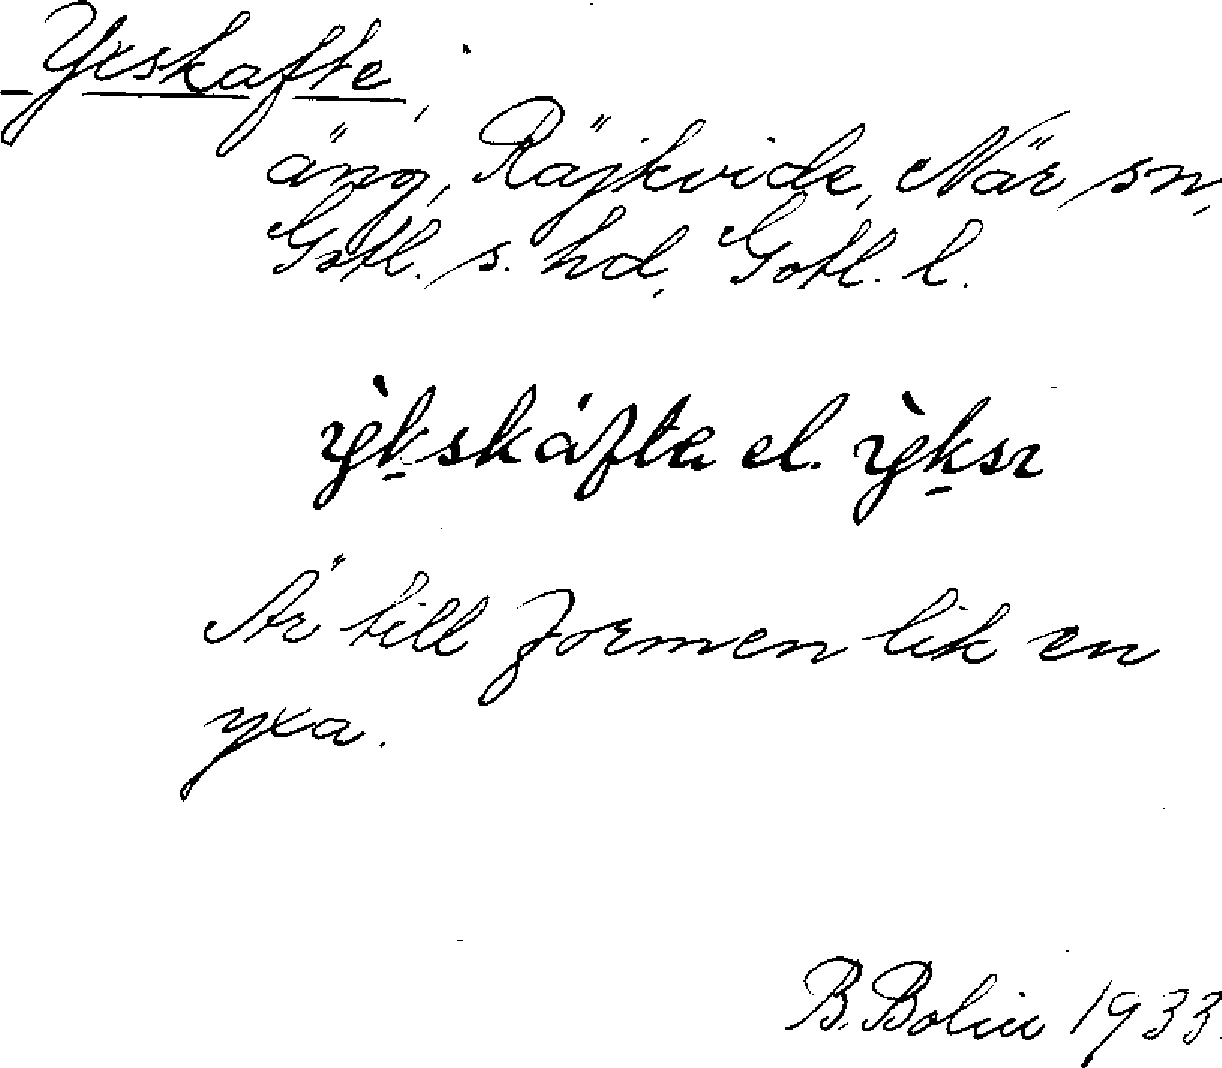 Yxskafte,
äng, Räjkvide, När sn,
Gotl. s. hd, Gotl. l.
ỳk̠skáfta el. ỳk̠sı
Är till formen lik en
yxa.
B. Bolin 1933.